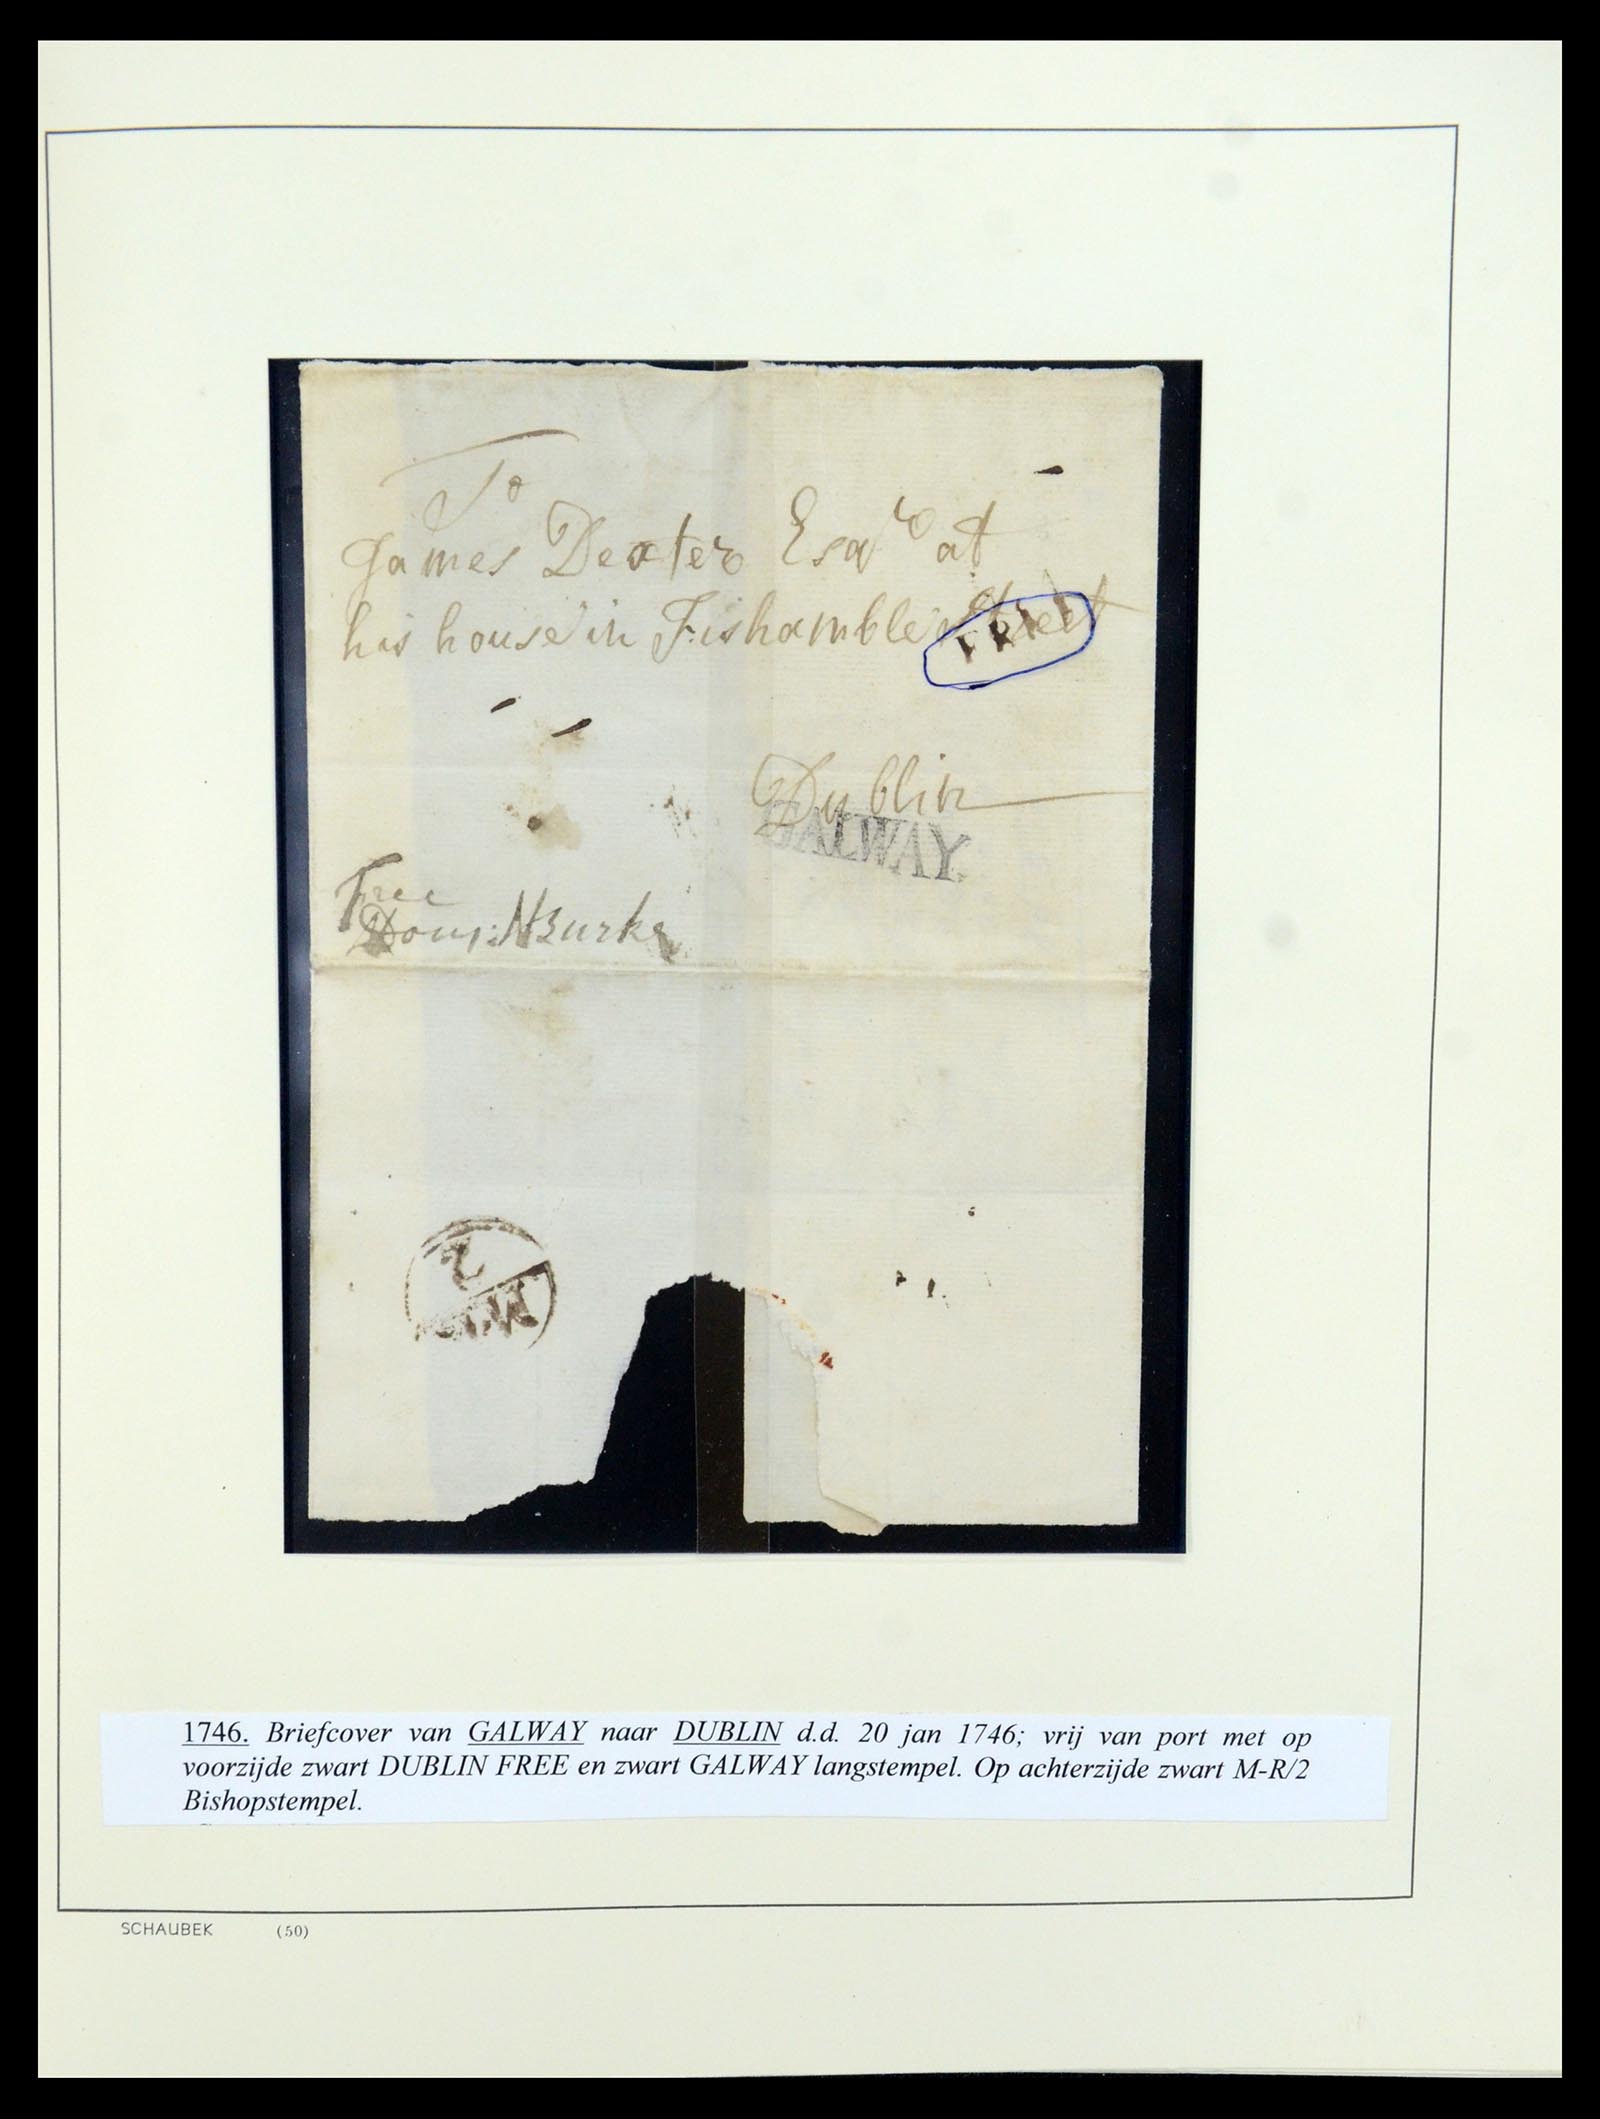 To
James Dexter Esqr at
his house in Fishamble Street
FREE
Dublin
GALWAY
Free
Dom: Burke
2
1746. Briefcover van GALWAY naar DUBLIN d.d. 20 jan 1746; vrij van port met op
voorzijde zwart DUBLIN FREE en zwart GALWAY langstempel. Op achterzijde zwart M-R/2
Bishopstempel.
SCHAUBEK (50)